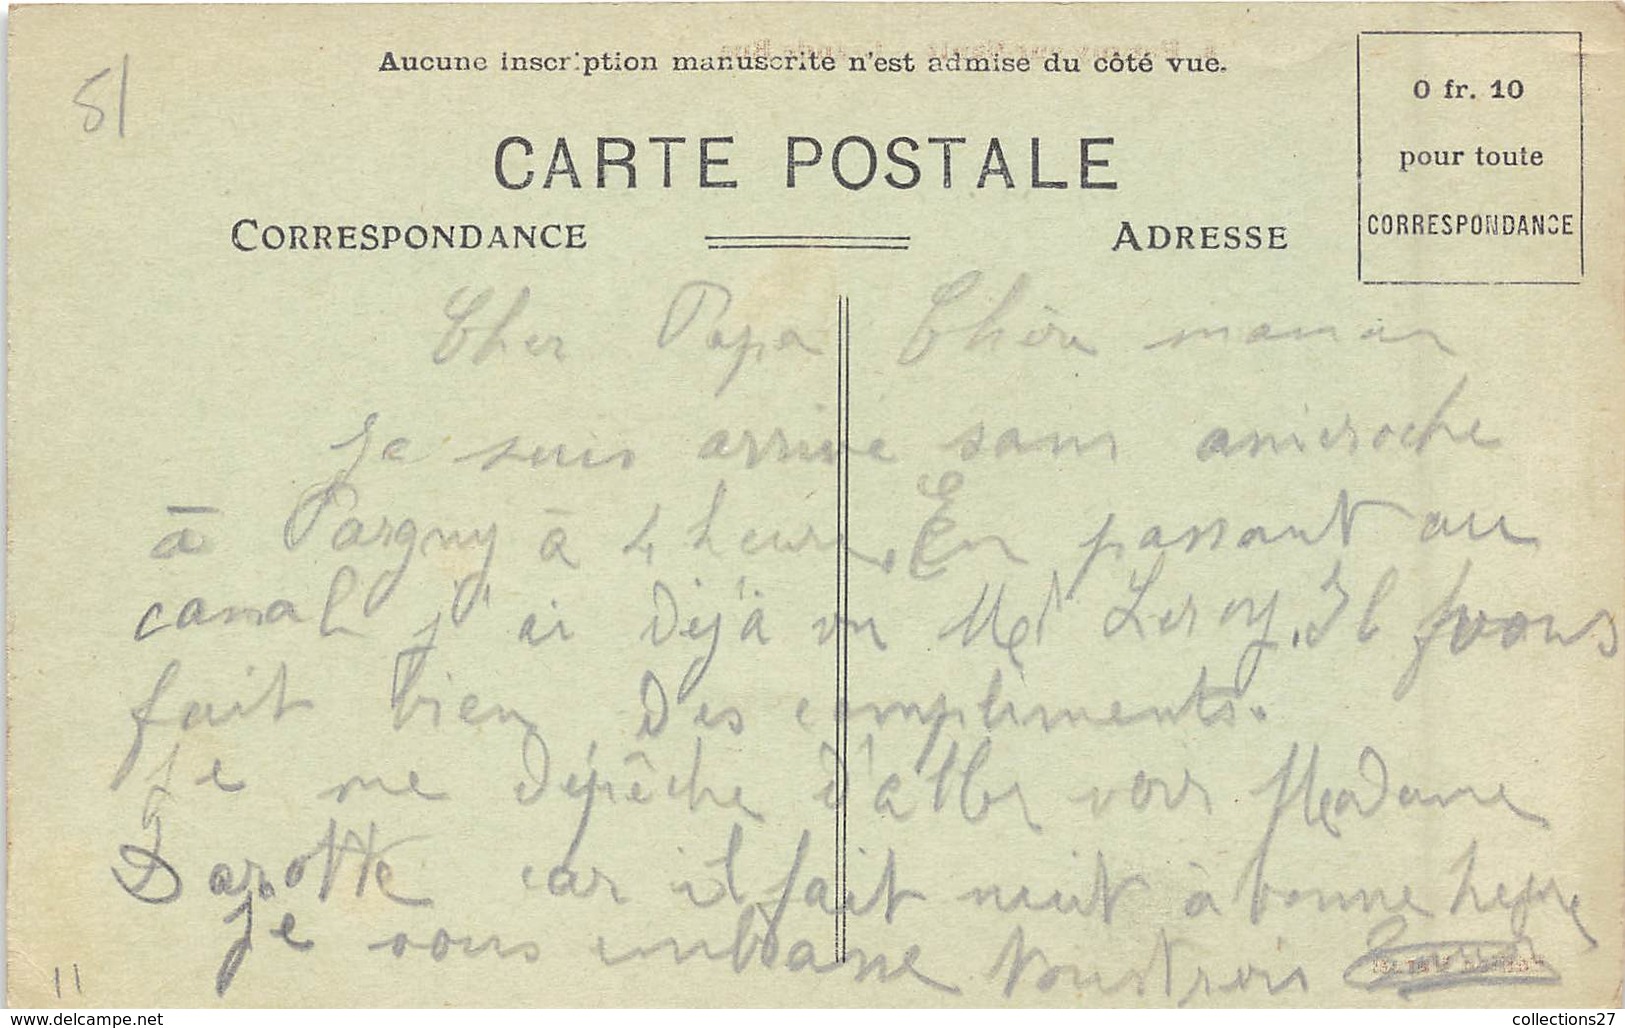 51
Aucune inscription manuscrite n'est admise du côté vue.
CARTE POSTALE
CORRESPONDANCE
ADRESSE
0 fr. 10
pour toute
CORRESPONDANCE
Cher Papa Chère maman
Je suis arrivé sans anicroche
à Pargny à 4 heures. En passant au
canal j'ai déjà vu Mr Leroy. Il vous
fait bien des compliments.
Je me dépêche d'aller voir Madame
Darotte car il fait nuit à bonne heure
Je vous embrasse tous trois
11
collections27
www.delcampe.net